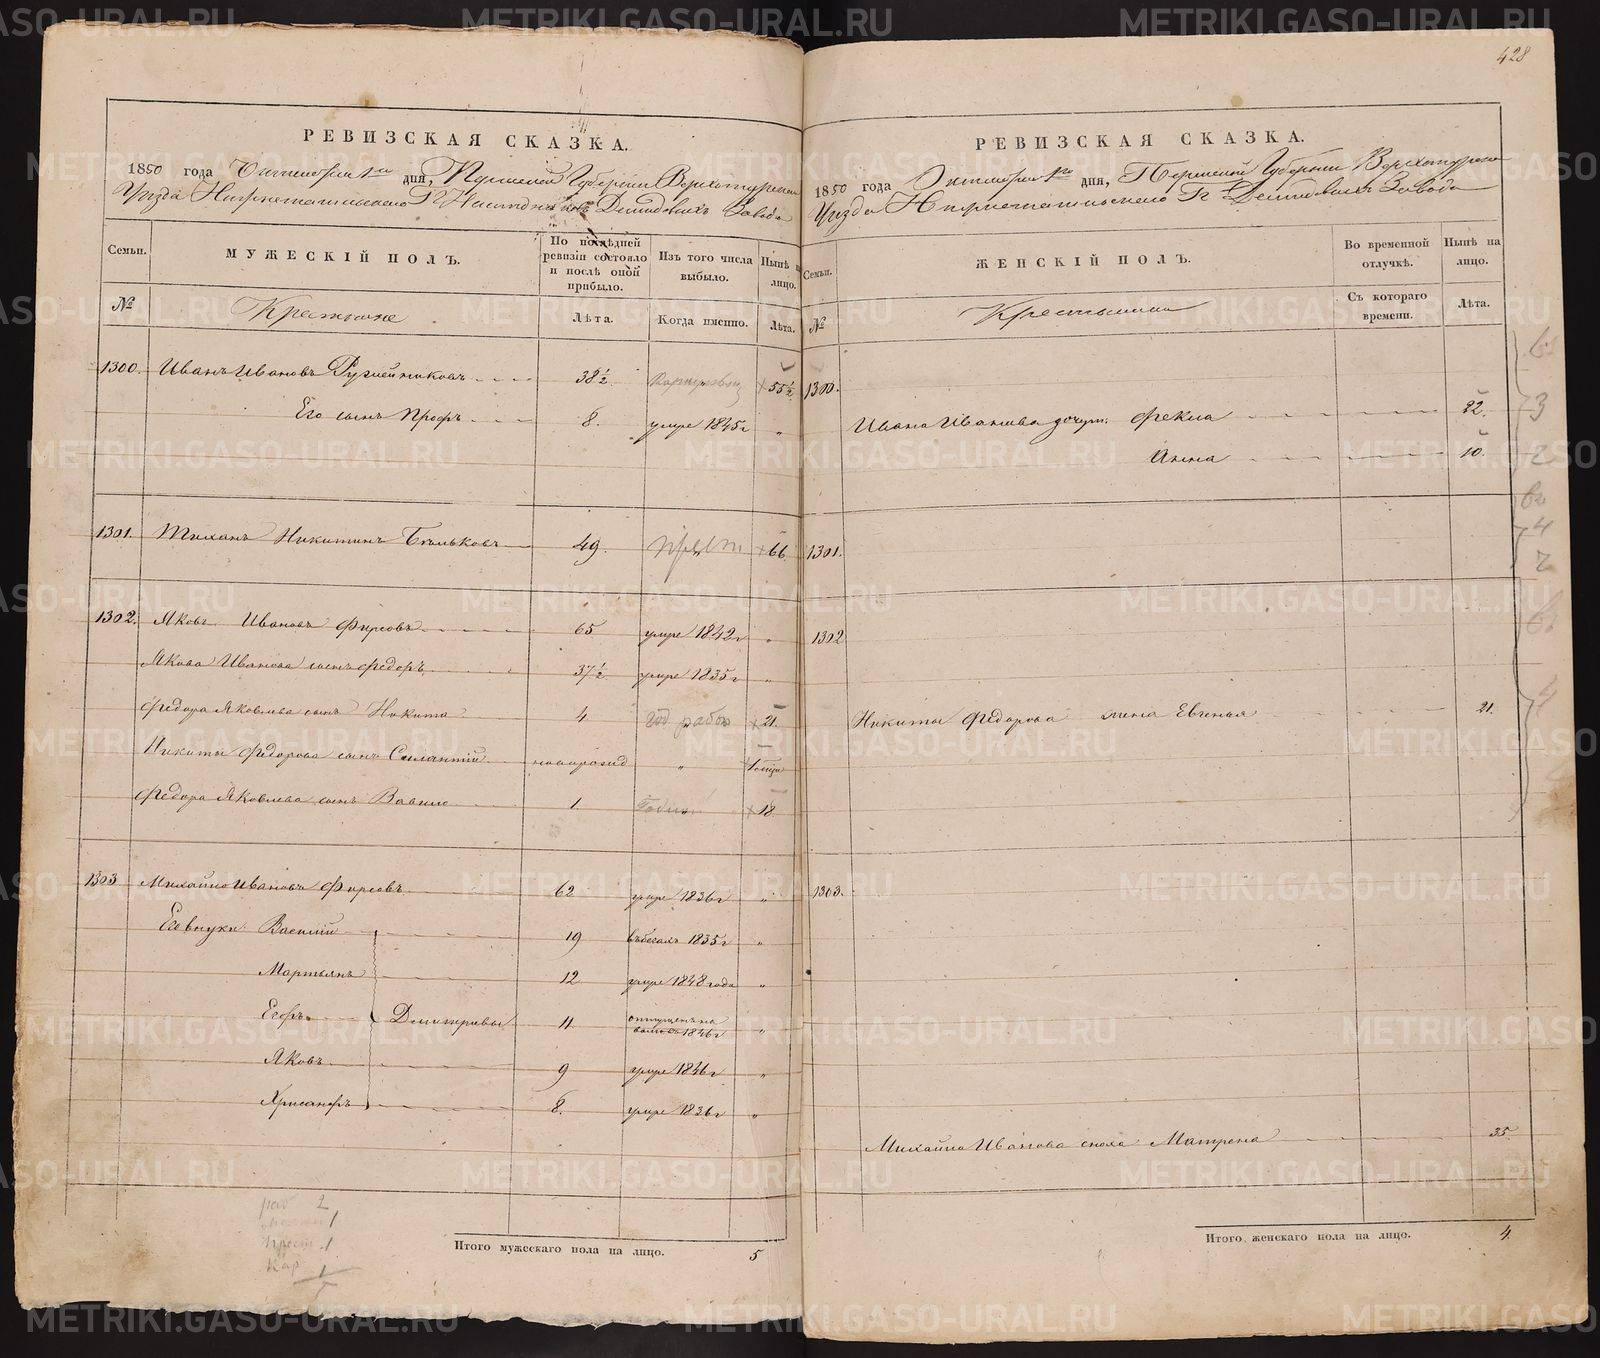 428
РЕВИЗСКАЯ СКАЗКА.
1850 года Октября 1го дня, Пермской Губернии Верхотурскаго
Уезда Нижнетагильскаго Гг Наследниковъ Демидовыхъ Завода
Семьи. МУЖЕСКІЙ ПОЛЪ. По последней ревизіи состояло и после оной прибыло. Изъ того числа выбыло. Ныне на лицо.
№ Крестьяне Лета. Когда именно. Лета.
1300. Иванъ Ивановъ 38½ 55½
Его сынъ Профъ 8. умре 1845г „
1301. Тихонъ Никитинъ Бельковъ 49. прест 66
1302. Яковъ Ивановъ Фирсовъ 65 умре 1842г „
Якова Иванова сынъ Федоръ 37½ умре 1835г „
Федора Яковлева сынъ Никита 4 год рабо 21
Никиты Федорова сынъ Силантій новорожд „
Федора Яковлева сынъ Вавило 1. 18
1303 Михайло Ивановъ Фирсовъ 62 умре 1836г „
Его внуки Василій 19 въбегахъ 1835г „
Мартьянъ 12 умре 1848 года „
Егоръ Дмитріевы 11 отпущенъ на волю въ 1846г „
Яковъ 9 умре 1846г „
Хрисанфъ 8. умре 1836г „
раб 2
1
прест. 1
Кар 1
5
Итого мужескаго пола на лицо. 5
РЕВИЗСКАЯ СКАЗКА.
1850 года Октября 1го дня, Пермской Губерніи Верхотурскаго
Уезда Нижнетагильскаго Гг Демидовыхъ Завода
Семьи. ЖЕНСКІЙ ПОЛЪ. Во временной отлучке. Ныне на лицо.
№ Крестьянки Съ котораго времени. Лета.
1300.
Ивана Иванова дочери: Фекла 22.
Анна 10.
1301.
1302
Никиты Федорова жена Евгенья 21.
1303.
Михайла Иванова сноха Матрена 35.
Итого женскаго пола на лицо. 4.
METRIKI.GASO-URAL.RU